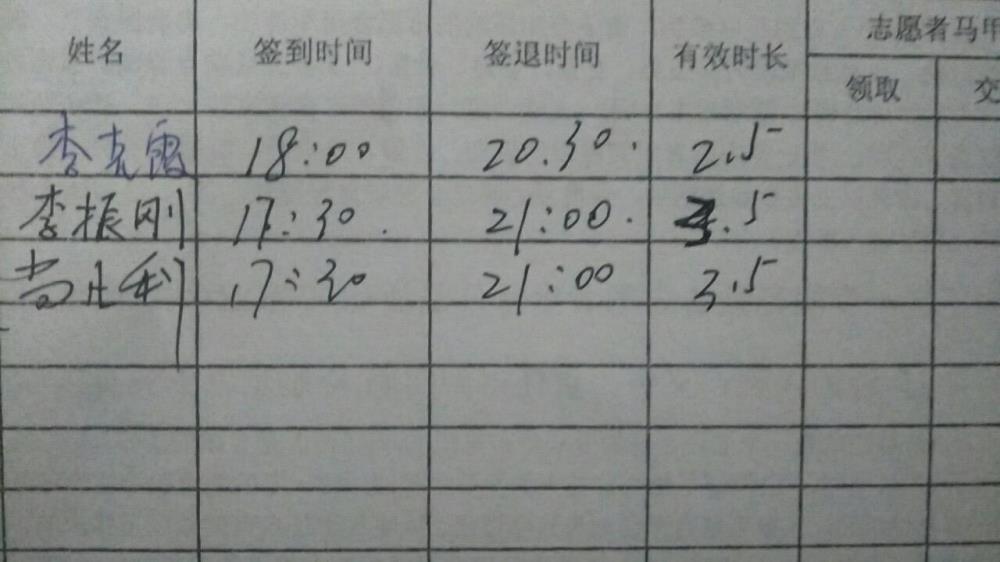 姓名 签到时间 签退时间 有效时长 志愿者马甲
领取 交
李克 18:00 20.30. 2.5
李振刚 17:30. 21:00. 3.5
17:30 21:00 3.5